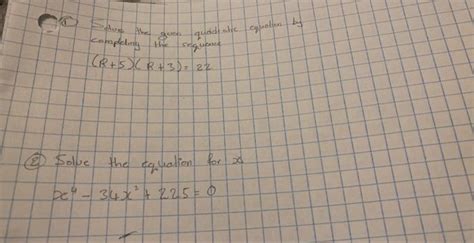 ① Solve the given quadratic equation by
completing the sequence
(R+5)(R+3) = 22
② Solve the equation for x
x⁴ - 34x² + 225 = 0